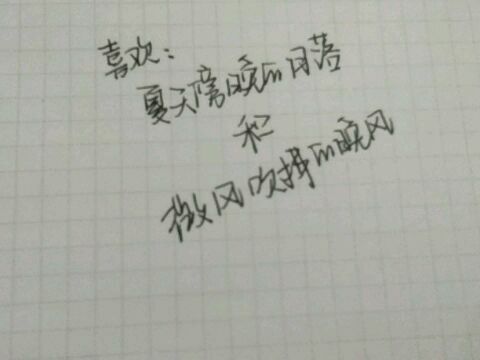 喜欢：
夏天傍晚的日落
和
微风吹拂的晚风